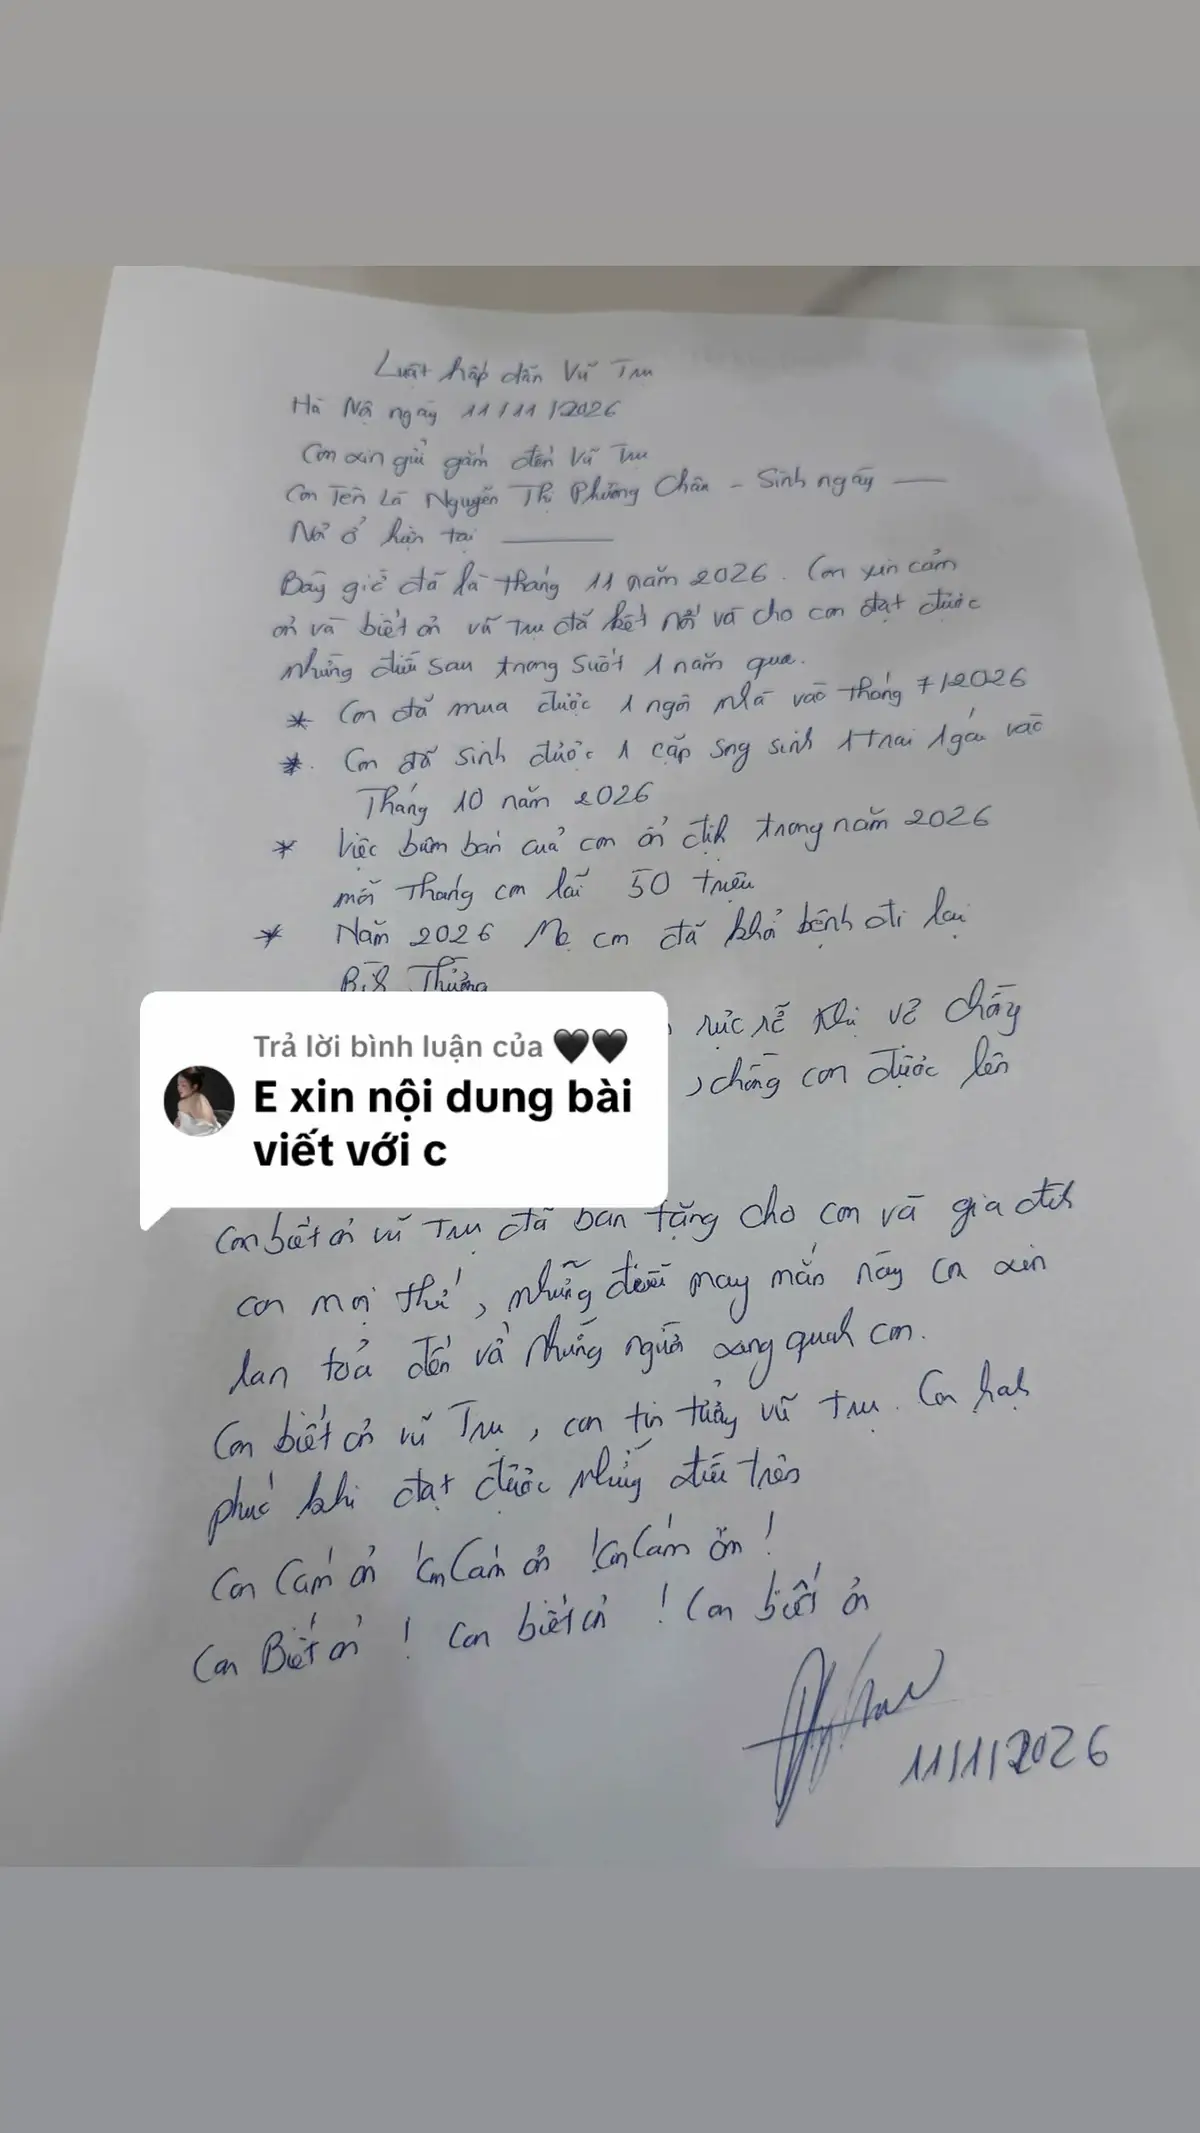 Luật hấp dẫn Vũ Trụ
Hà Nội ngày 11/11/2026
Con xin gửi gắm đến Vũ Trụ
Con Tên Là Nguyễn Thị Phương Chân - Sinh ngày
Nơi ở hiện tại
Bây giờ đã là tháng 11 năm 2026. Con xin cảm
ơn và biết ơn vũ trụ đã kết nối và cho con đạt được
những điều sau trong suốt 1 năm qua.
* Con đã mua được 1 ngôi nhà vào tháng 7/2026
* Con đã sinh được 1 cặp song sinh 1 trai 1 gái vào
Tháng 10 năm 2026
* Việc buôn bán của con ổn định trong năm 2026
mỗi Tháng con lãi 50 triệu
* Năm 2026 Mẹ con đã khỏi bệnh đi lại
Bình Thường
rực rỡ
, chồng con được lên
Trả lời bình luận của 🖤🖤
E xin nội dung bài
viết với c
Con biết ơn vũ Trụ đã ban tặng cho con và gia đình
con mọi thứ, những điều may mắn này con xin
lan toả đến và những người xung quanh con.
Con biết ơn vũ Trụ, con tin tưởng vũ trụ. Con hạnh
phúc khi đạt được những điều trên
Con Cảm ơn ! Con Cảm ơn ! Con Cảm ơn !
Con Biết ơn ! Con biết ơn ! Con biết ơn
11/1/2026